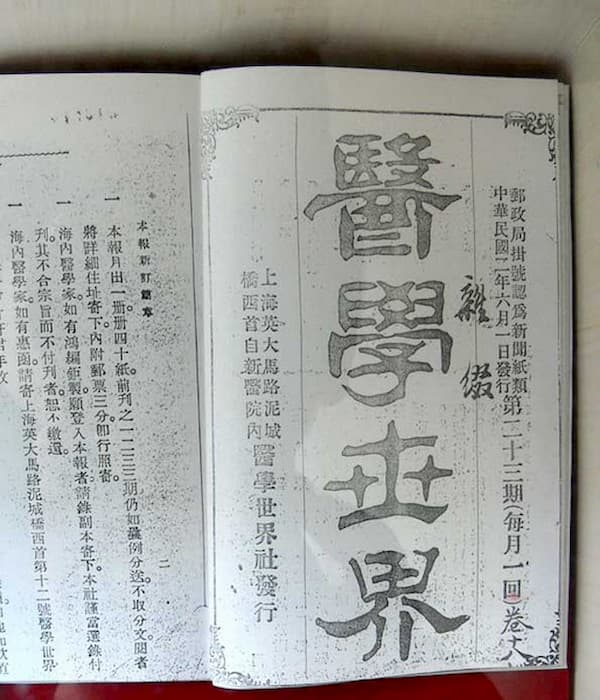 郵政局掛號認爲新聞紙類
中華民國二年六月一日發行
第二十三期(每月一回)
卷十八
雜綴
醫學世界
上海英大馬路泥城
橋西首自新醫院內
醫學世界社發行
本報新訂簡章
一 本報月出一册册四十紙前刊之一二三期仍如曩例分送不取分文閱者
將詳細住址寄下內附郵票三分卽行照寄。
一 海內醫學家如有鴻編鉅製願登入本報者請錄副本寄下。本社謹當選錄付
刊其不合宗旨而不付刊者恕不繳還。
一 海內醫學家如有惠函請寄上海英大馬路泥城橋西首第十二號醫學世界